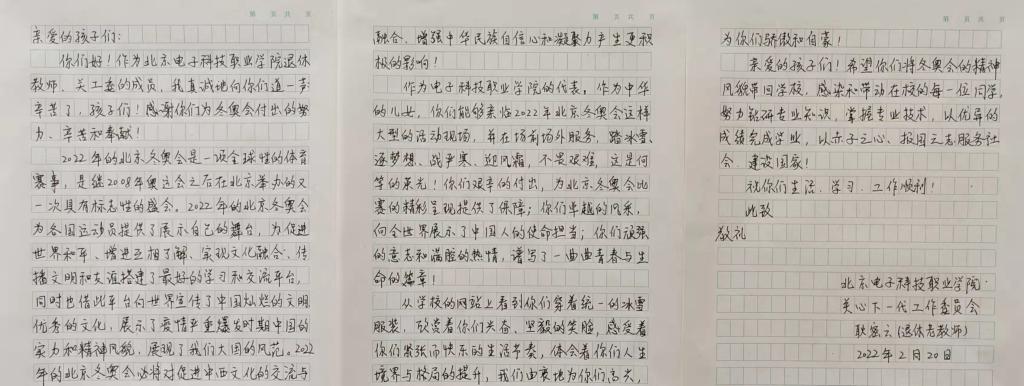 第 页 共 页
亲爱的孩子们：
你们好！作为北京电子科技职业学院退休
教师、关工委的成员，我真诚地向你们道一声
辛苦了，孩子们！感谢你们为冬奥会付出的努
力、辛苦和奉献！
2022年的北京冬奥会是一项全球性的体育
赛事，是继2008年奥运会之后在北京举办的又
一次具有标志性的盛会。2022年的北京冬奥会
为各国运动员提供了展示自己的舞台，为促进
世界和平、增进互相了解、实现文化融合、传
播文明和友谊搭建了最好的学习和交流平台，
同时也借此平台向世界宣传了中国灿烂的文明
优秀的文化，展示了疫情严重爆发时期中国的
实力和精神风貌，展现了我们大国的风范。2022
年的北京冬奥会必将对促进中西文化的交流与
第 页 共 页
融合、增强中华民族自信心和凝聚力产生更积
极的影响！
作为电子科技职业学院的代表，作为中华
的儿女，你们能够亲临2022年北京冬奥会这样
大型的活动现场，并在场前场外服务，踏冰雪、
逐梦想、战严寒、迎风霜，不畏艰难，这是何
等的荣光！你们艰辛的付出，为北京冬奥会比
赛的精彩呈现提供了保障；你们卓越的风采，
向全世界展示了中国人的使命担当；你们顽强
的意志和满腔的热情，谱写了一曲曲青春与生
命的篇章！
从学校的网站上看到你们穿着统一的冰雪
服装，欣赏着你们兴奋、坚毅的笑脸，感受着
你们紧张而快乐的生活节奏，体会着你们人生
境界与格局的提升，我们由衷地为你们高兴，
第 页 共 页
为你们骄傲和自豪！
亲爱的孩子们！希望你们将冬奥会的精神
风貌带回学校，感染和带动在校的每一位同学。
努力钻研专业知识，掌握专业技术，以优异的
成绩完成学业，以赤子之心、报国之志服务社
会、建设国家！
祝你们生活、学习、工作顺利！
此致
敬礼
北京电子科技职业学院
关心下一代工作委员会
(退休老教师)
2022年2月20日